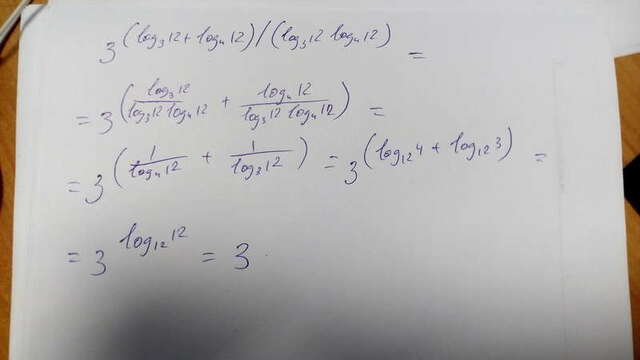 3^(log₃12 + log₄12)/(log₃12 log₄12) =
= 3^(log₃12/(log₃12 log₄12) + log₄12/(log₃12 log₄12)) =
= 3^(1/log₄12 + 1/log₃12) = 3^(log₁₂4 + log₁₂3) =
= 3^log₁₂12 = 3